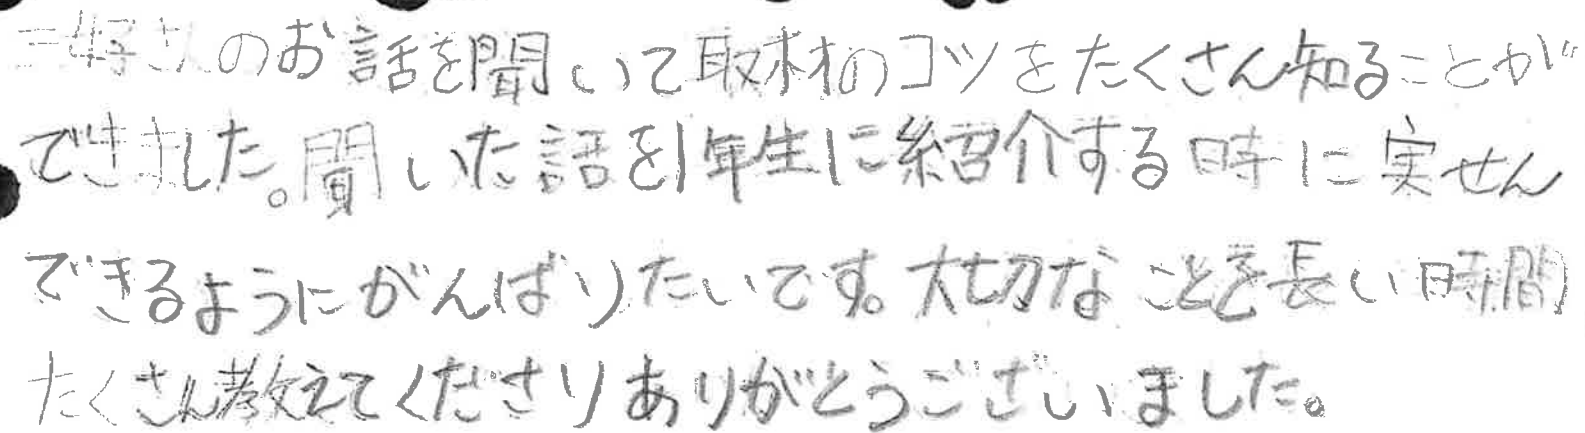 三好さんのお話を聞いて取材のコツをたくさん知ることが
できました。聞いた話を1年生に紹介する時に実せん
できるようにがんばりたいです。大切なことを長い時間
たくさん教えてくださりありがとうございました。